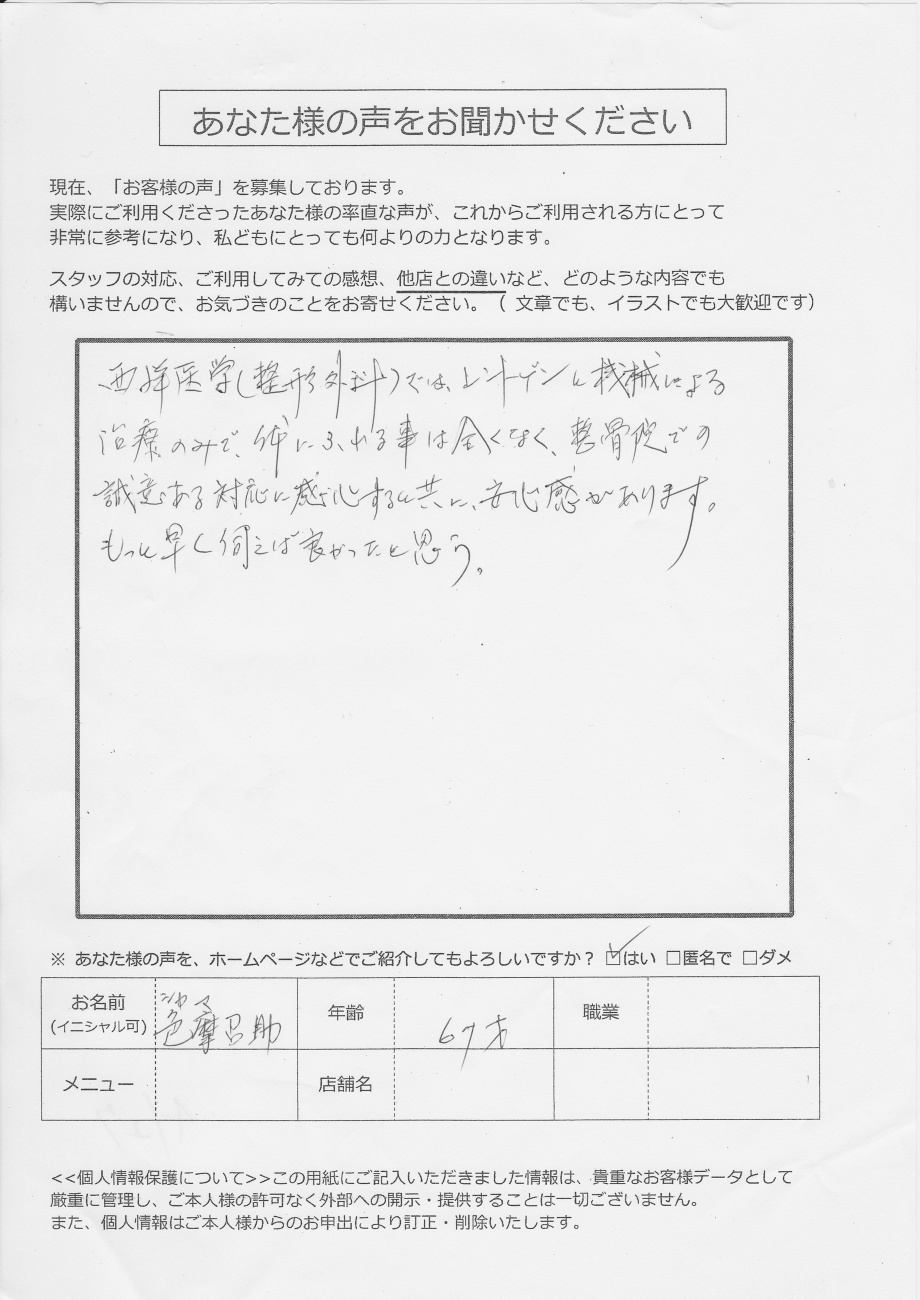 あなた様の声をお聞かせください
現在、「お客様の声」を募集しております。
実際にご利用くださったあなた様の率直な声が、これからご利用される方にとって
非常に参考になり、私どもにとっても何よりの力となります。
スタッフの対応、ご利用してみての感想、他店との違いなど、どのような内容でも
構いませんので、お気づきのことをお寄せください。（ 文章でも、イラストでも大歓迎です）
西洋医学(整形外科)では、レントゲンと機械による
治療のみで、体にふれる事は全くなく、整骨院での
誠意ある対応に感心すると共に、安心感があります。
もっと早く伺えば良かったと思う。
※ あなた様の声を、ホームページなどでご紹介してもよろしいですか？ ☑はい □匿名で □ダメ
お名前 年齢 67才 職業
(イニシャル可) 摩 助
メニュー 店舗名
<<個人情報保護について>>この用紙にご記入いただきました情報は、貴重なお客様データとして
厳重に管理し、ご本人様の許可なく外部への開示・提供することは一切ございません。
また、個人情報はご本人様からのお申出により訂正・削除いたします。